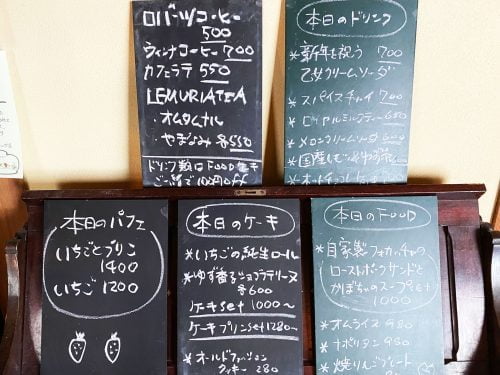 ロバーツコーヒー
500
ウィンナコーヒー 700
カフェラテ 550
LEMURIATEA
オムタムナル
やまなみ 各550
ドリンク類はFOOD
100円OFF
本日のドリンク
*新年を祝う 700
乙女クリームソーダ
*スパイスチャイ 700
*ロイヤルミルクティー
*メロンクリームソーダ
*国産レモン
*ホットチョコレート
本日のパフェ
いちごとプリン
1400
いちご 1200
本日のケーキ
*いちごの純生ロール
*ゆず香るショコラテリーヌ
各600
ケーキset 1000〜
ケーキプリンset 1280〜
*オールドファッション
クッキー 280
本日のFOOD
*自家製フォカッチャの
ローストポークサンドと
かぼちゃのスープset
1000
*オムライス 980
*ナポリタン 980
*焼りんごプレート